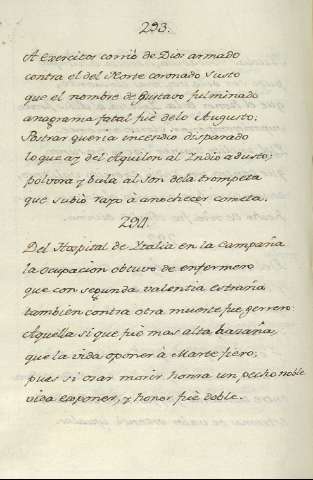 293.
A Exercitos corrió de Dios armado
contra el del Norte coronado susto
que el nombre de Gustavo fulminado
anagrama fatal fuè de lo Augusto;
Postrar queria incendio disparado
lo que ay del Aquilon al Indio adusto;
polvora y bala al son de la trompeta
que subió rayo à anochecer cometa.
294.
Del Hospital de Italia en la Campaña
la ocupacion obtuvo de enfermero
que con segunda valentia estraña
tambien contra otra muerte fue guerrero
Aquella si que fuè mas alta hazaña,
que la vida oponer à Marte fiero;
pues si osar morir honra un pecho noble
vida exponer, y honor fuè doble.